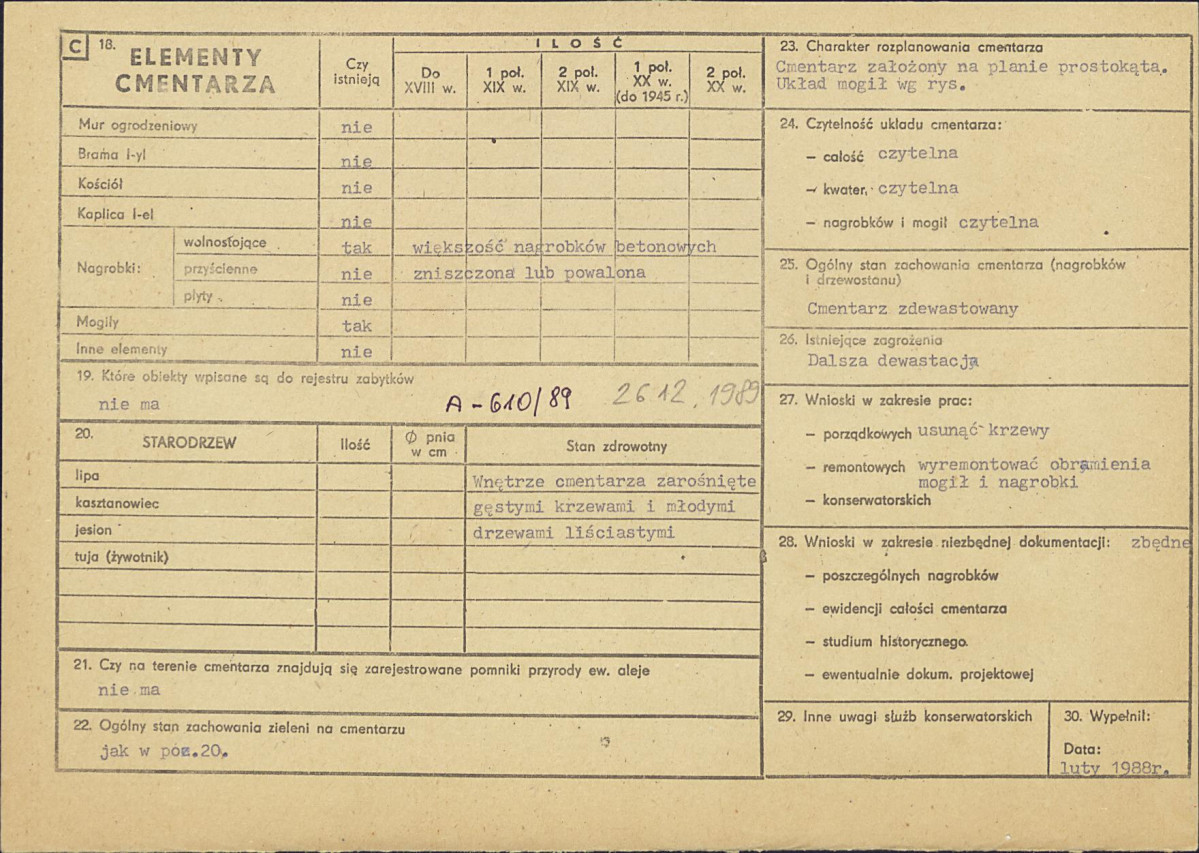 C 18. ELEMENTY CMENTARZA
Czy istnieją
ILOŚĆ
Do XVIII w.
1 poł. XIX w.
2 poł. XIX w.
1 poł. XX w. (do 1945 r.)
2 poł. XX w.
Mur ogrodzeniowy nie
Brama i-yl nie
Kościół nie
Kaplica i-el nie
Nagrobki: wolnostojące tak większość nagrobków betonowych
przyścienne nie zniszczona lub powalona
płyty nie
Mogiły tak
Inne elementy nie
19. Które obiekty wpisane są do rejestru zabytków
nie ma A-610/89 26 12. 1989
20. STARODRZEW Ilość Ø pnia w cm Stan zdrowotny
lipa Wnętrze cmentarza zarośnięte
kasztanowiec gęstymi krzewami i młodymi
jesion drzewami liściastymi
tuja (żywotnik)
21. Czy na terenie cmentarza znajdują się zarejestrowane pomniki przyrody ew. aleje
nie ma
22. Ogólny stan zachowania zieleni na cmentarzu
jak w poz.20.
23. Charakter rozplanowania cmentarza
Cmentarz założony na planie prostokąta.
Układ mogił wg rys.
24. Czytelność układu cmentarza:
– całość czytelna
– kwater, czytelna
– nagrobków i mogił czytelna
25. Ogólny stan zachowania cmentarza (nagrobków
i drzewostanu)
Cmentarz zdewastowany
26. Istniejące zagrożenia
Dalsza dewastacja
27. Wnioski w zakresie prac:
– porządkowych usunąć krzewy
– remontowych wyremontować obramienia
mogił i nagrobki
– konserwatorskich
28. Wnioski w zakresie niezbędnej dokumentacji: zbędne
– poszczególnych nagrobków
– ewidencji całości cmentarza
– studium historycznego.
– ewentualnie dokum. projektowej
29. Inne uwagi służb konserwatorskich
30. Wypełnił:
Data:
luty 1988r.